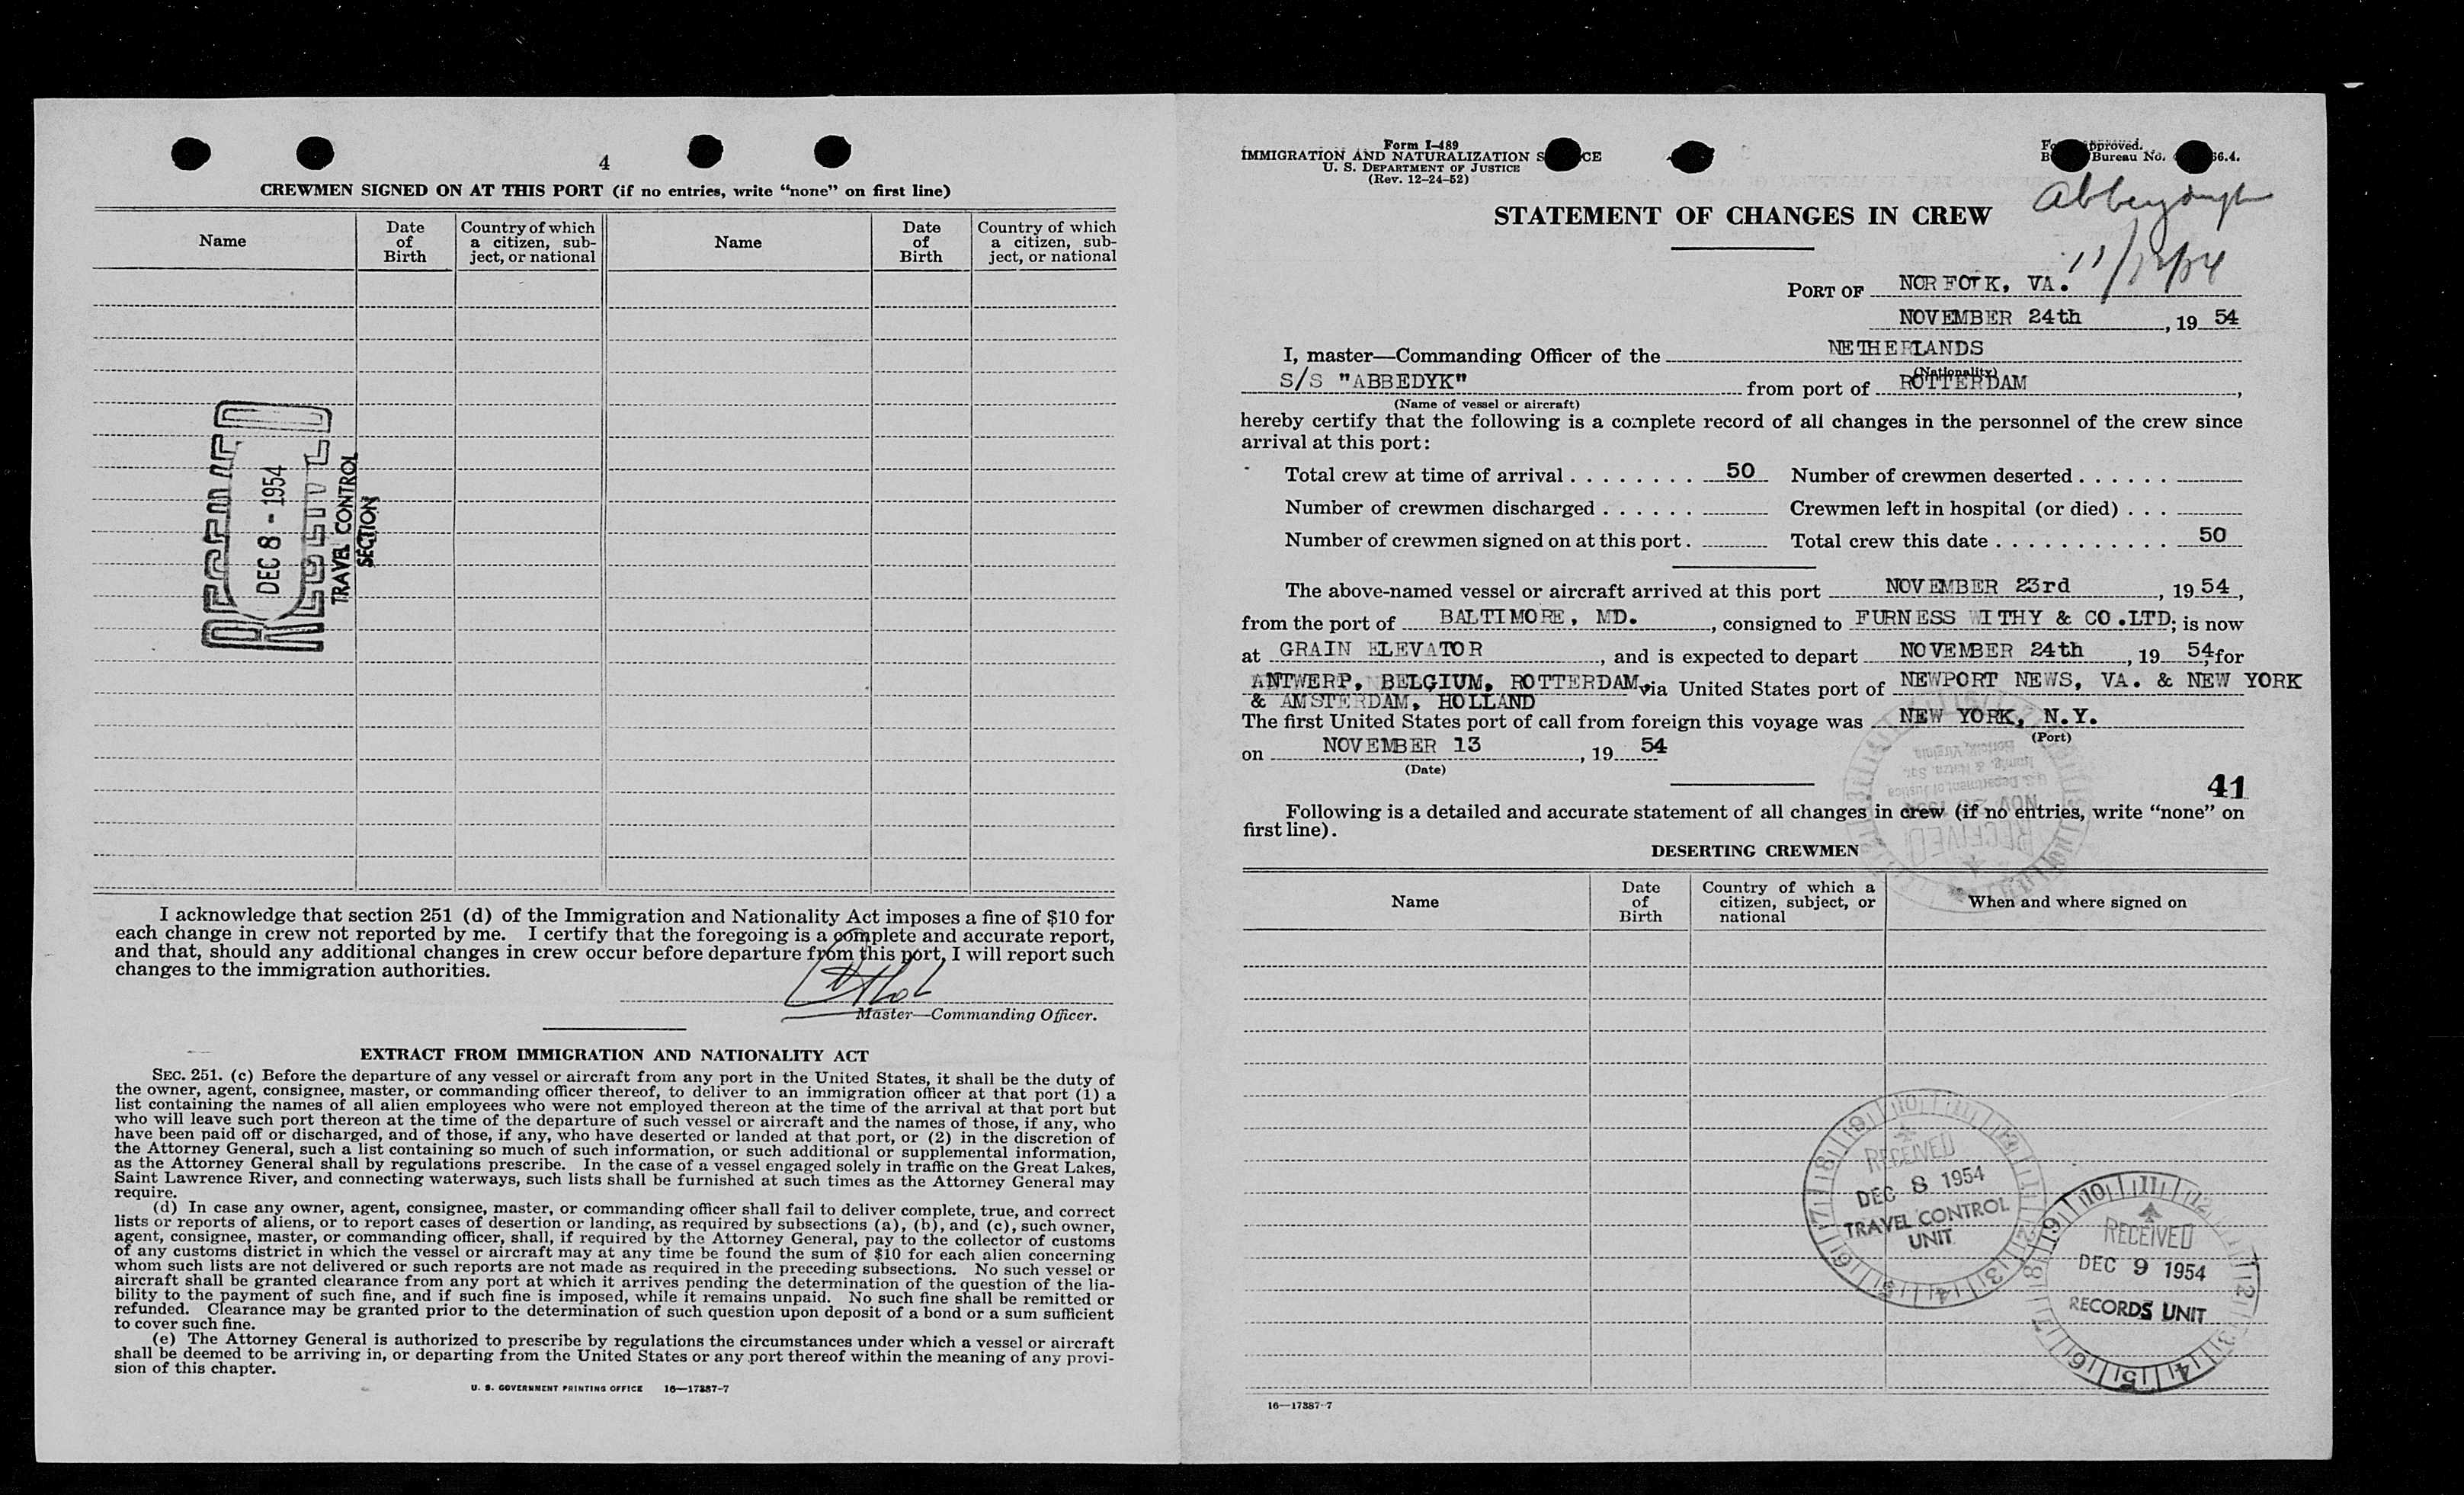 4
CREWMEN SIGNED ON AT THIS PORT (if no entries, write “none” on first line)
Name
Date of Birth
Country of which a citizen, sub-
ject, or national
Name
Date of Birth
Country of which a citizen, sub-
ject, or national
RECEIVED
DEC 8 - 1954
TRAVEL CONTROL
SECTION
I acknowledge that section 251 (d) of the Immigration and Nationality Act imposes a fine of $10 for
each change in crew not reported by me. I certify that the foregoing is a complete and accurate report,
and that, should any additional changes in crew occur before departure from this port, I will report such
changes to the immigration authorities.
Master—Commanding Officer.
EXTRACT FROM IMMIGRATION AND NATIONALITY ACT
SEC. 251. (c) Before the departure of any vessel or aircraft from any port in the United States, it shall be the duty of
the owner, agent, consignee, master, or commanding officer thereof, to deliver to an immigration officer at that port (1) a
list containing the names of all alien employees who were not employed thereon at the time of the arrival at that port but
who will leave such port thereon at the time of the departure of such vessel or aircraft and the names of those, if any, who
have been paid off or discharged, and of those, if any, who have deserted or landed at that port, or (2) in the discretion of
the Attorney General, such a list containing so much of such information, or such additional or supplemental information,
as the Attorney General shall by regulations prescribe. In the case of a vessel engaged solely in traffic on the Great Lakes,
Saint Lawrence River, and connecting waterways, such lists shall be furnished at such times as the Attorney General may
require.
(d) In case any owner, agent, consignee, master, or commanding officer shall fail to deliver complete, true, and correct
lists or reports of aliens, or to report cases of desertion or landing, as required by subsections (a), (b), and (c), such owner,
agent, consignee, master, or commanding officer, shall, if required by the Attorney General, pay to the collector of customs
of any customs district in which the vessel or aircraft may at any time be found the sum of $10 for each alien concerning
whom such lists are not delivered or such reports are not made as required in the preceding subsections. No such vessel or
aircraft shall be granted clearance from any port at which it arrives pending the determination of the question of the lia-
bility to the payment of such fine, and if such fine is imposed, while it remains unpaid. No such fine shall be remitted or
refunded. Clearance may be granted prior to the determination of such question upon deposit of a bond or a sum sufficient
to cover such fine.
(e) The Attorney General is authorized to prescribe by regulations the circumstances under which a vessel or aircraft
shall be deemed to be arriving in, or departing from the United States or any port thereof within the meaning of any provi-
sion of this chapter.
U. S. GOVERNMENT PRINTING OFFICE 16—17387-7
Form I-489
IMMIGRATION AND NATURALIZATION S CE
U. S. DEPARTMENT OF JUSTICE
(Rev. 12-24-52)
pproved.
Bureau No. 66.4.
STATEMENT OF CHANGES IN CREW
PORT OF NORFOLK, VA.
NOVEMBER 24th, 19 54
I, master—Commanding Officer of the NETHERLANDS
(Nationality)
S/S "ABBEDYK" from port of ROTTERDAM,
(Name of vessel or aircraft)
hereby certify that the following is a complete record of all changes in the personnel of the crew since
arrival at this port:
Total crew at time of arrival . . . . . . . . 50 Number of crewmen deserted . . . . . .
Number of crewmen discharged . . . . . . Crewmen left in hospital (or died) . . .
Number of crewmen signed on at this port . Total crew this date . . . . . . . . . . . 50
The above-named vessel or aircraft arrived at this port NOVEMBER 23rd, 19 54,
from the port of BALTIMORE, MD., consigned to FURNESS WITHY & CO.LTD; is now
at GRAIN ELEVATOR, and is expected to depart NOVEMBER 24th, 19 54, for
ANTWERP, BELGIUM, ROTTERDAM, via United States port of NEWPORT NEWS, VA. & NEW YORK
& AMSTERDAM, HOLLAND
The first United States port of call from foreign this voyage was NEW YORK, N.Y.
(Port)
on NOVEMBER 13, 19 54
(Date)
41
Following is a detailed and accurate statement of all changes in crew (if no entries, write “none” on
first line).
DESERTING CREWMEN
Name
Date of Birth
Country of which a citizen, subject, or national
When and where signed on
RECEIVED
DEC 8 1954
TRAVEL CONTROL
UNIT
RECEIVED
DEC 9 1954
RECORDS UNIT
16—17387-7